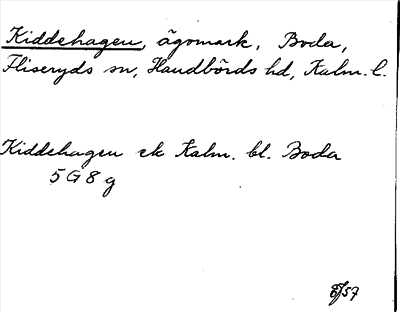 Kiddehagen, ägomark, Boda,
Fliseryds sn, Handbörds hd, Kalm. l.
Kiddehagen ek Kalm. bl. Boda
5 G 8 g
57